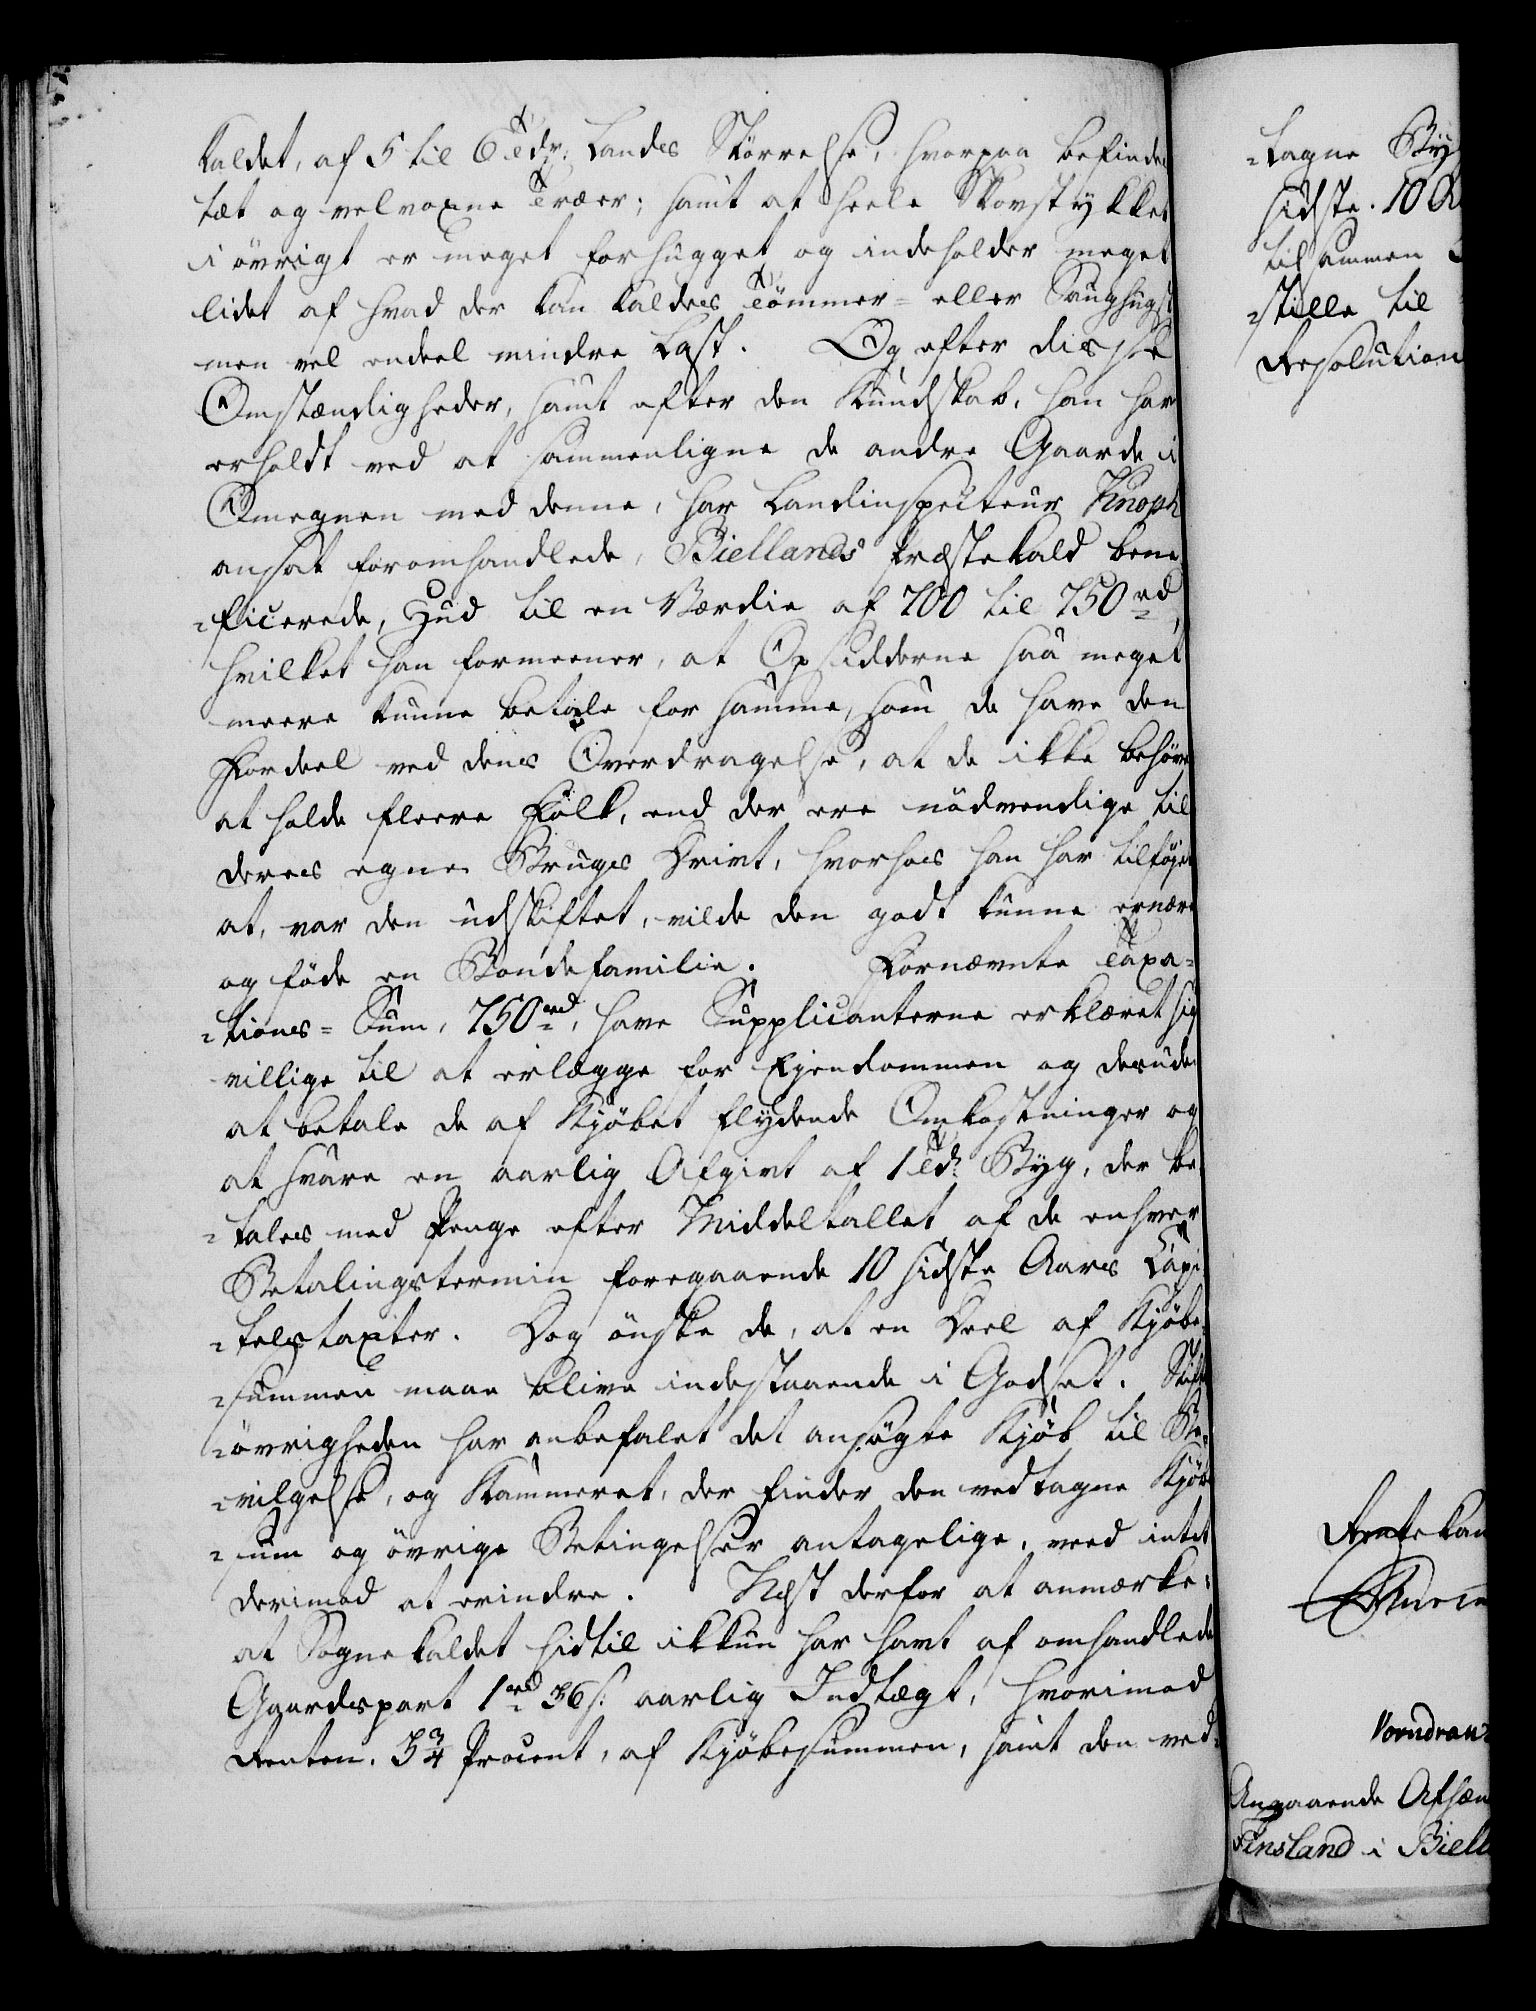 kaldet, af 5 til 6 Tdr: Landes Störrelse, hvorpaa befindes
tæt og velvoxne Træer; samt at heele Skovstykket
i övrigt er meget forhugget og indeholder meget
lidet af hvad der kan kaldes Tömmer- eller Saughugst
men vel endeel mindre Last. Og efter disse
Omstændigheder, samt efter den Kundskab, han har
erholdt ved at sammenligne de andre Gaarde i
Omegnen med denne, har Landinspecteur Knoph
ansat foromhandlede, Biellands Præstekald bene-
-ficerede, Hud til en Værdie af 700 til 750 rd,
hvilket han formeener, at Opsidderne saa meget
meere kunne betale for samme, som de have den
Fordeel ved dens Overdragelse, at de ikke behöve
at holde fleere Folk, end der ere nödvendige til
deres egne Bruges Drivt, hvorhos han har tilföjet
at, var den udskiftet, vilde den godt kunne ernære
og föde en Bondefamilie. Fornævnte Taxa-
-tions-Sum, 750 rd, have Supplicanterne erklæret sig
villige til at erlægge for Ejendommen og desuden
at betale de af Kjöbet flydende Omkostninger og
at svare en aarlig Afgivt af 1 Td: Byg, der be-
-tales med Penge efter Middeltallet af de enhver
Betalingstermin foregaaende 10 sidste Aars Capi-
-telstaxter. Dog önske de, at en Deel af Kjöbe-
-summen maae blive indestaaende i Godset. Stifts-
-övrigheden har anbefalet det ansögte Kjöb til Be-
-vilgelse, og Kammeret, der finder den vedtagne Kjöbe-
-sum og övrige Betingelser antagelige, veed intet
derimod at erindre. Næst derfor at anmærke:
at Sognekaldet hidtil ikkun har havt af omhandlede
Gaardspart 1 rd 36 s: aarlig Indtægt, hvorimod
Renten, 3 3/4 Procent, af Kjöbesummen, samt den ved-
-tagne Byg
sidste 10
tilsammen
-stille til
Resolution
Rentekam
Vorndran
Angaaende Afhæn
Finsland i Biell